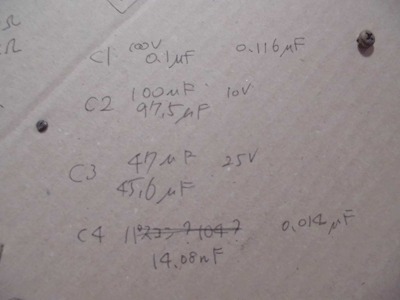 Ω
Ω
C1 100V 0.1μF 0.116μF
C2 100μF 10V
97.5μF
C3 47μF 25V
45.6μF
C4 パスコン? 104? 0.014μF
14.08nF